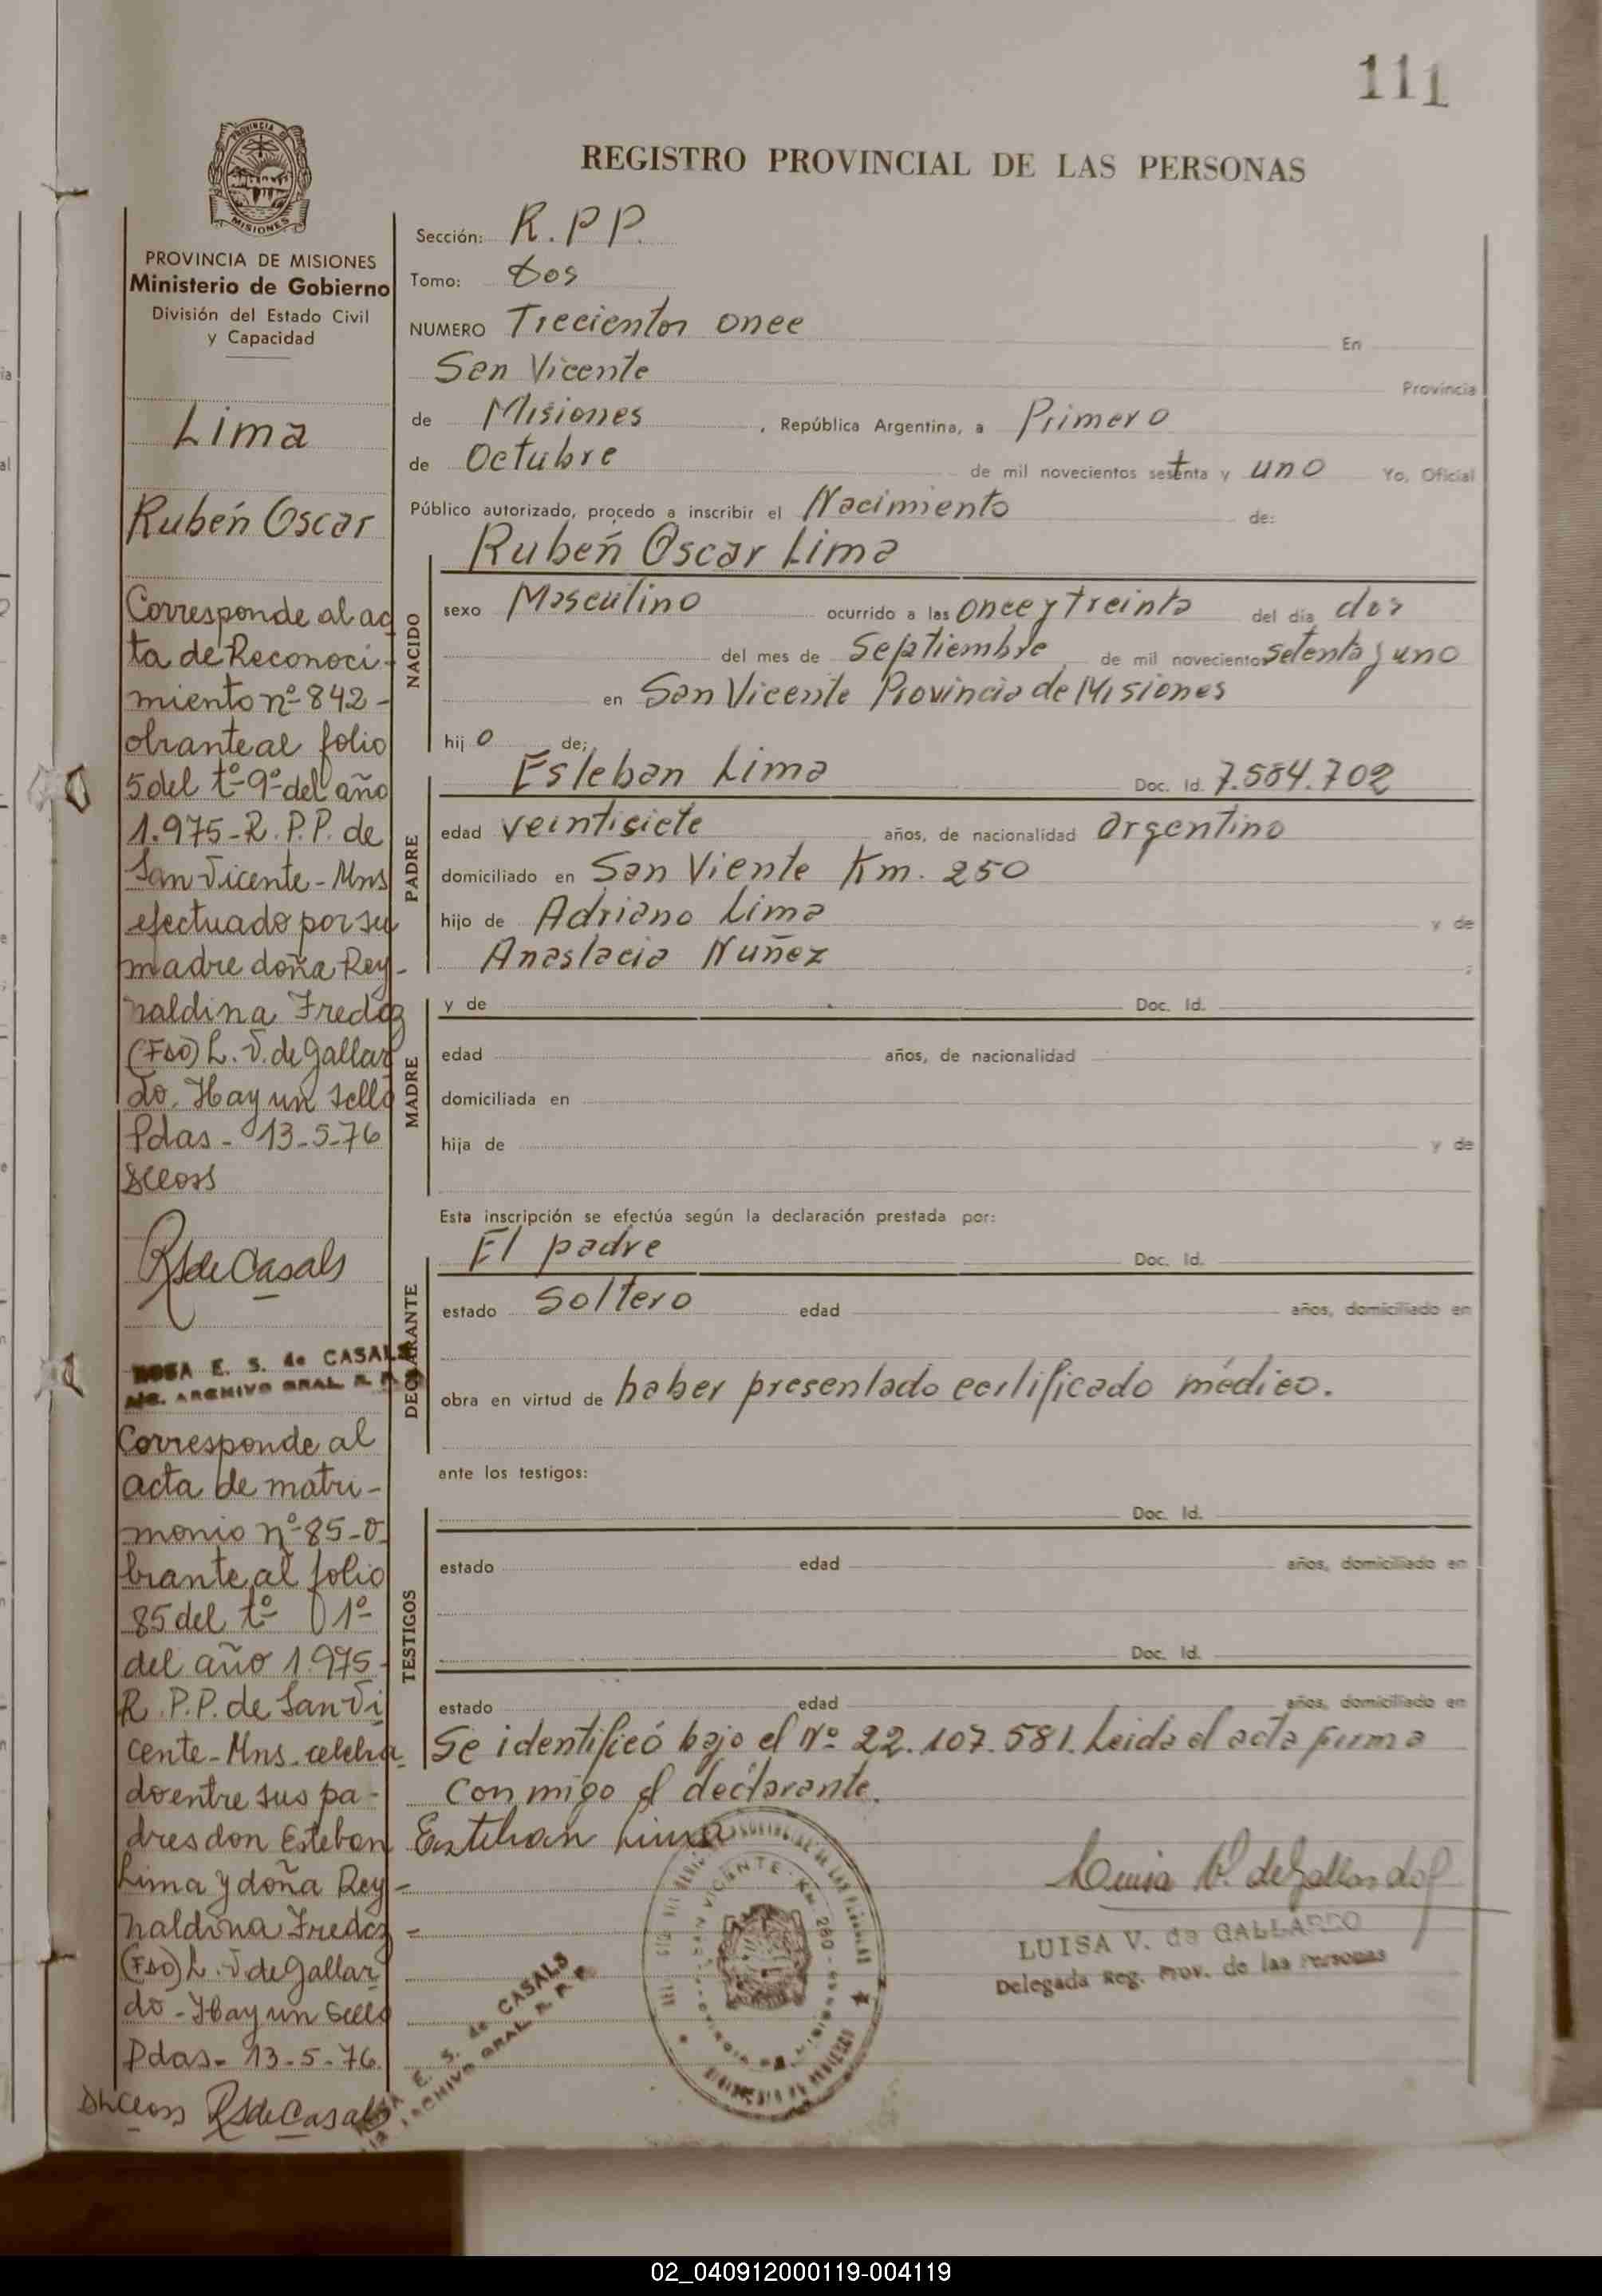 111
REGISTRO PROVINCIAL DE LAS PERSONAS
PROVINCIA DE
MISIONES
PROVINCIA DE MISIONES
Ministerio de Gobierno
División del Estado Civil
y Capacidad
Lima
Rubén Oscar
Corresponde al ac
ta de Reconoci-
miento nº 842-
obrante al folio
5 del tº 9º del año
1.975-R.P.P. de
San Vicente-Mns
efectuado por su
madre doña Rey-
naldina Fredoz
(Fdo) L.V. de Gallar
do. Hay un sello
Pdas- 13-5-76
RSdeCasals
ROSA E. S. de CASALS
ARCHIVO GRAL. R. P.
Corresponde al
acta de matri-
monio nº 85-o
brante al folio
85 del tº 1º
del año 1.975-
R.P.P. de San Vi
cente-Mns. celebra
do entre sus pa-
dres don Esteban
Lima y doña Rey-
naldina Fredoz
(Fdo) L.V de Gallar
do-Hay un sello
Pdas- 13-5-76.
RSdeCasals
Sección: R.P.P.
Tomo: dos
NUMERO Trecientos once En
San Vicente Provincia
de Misiones, República Argentina, a Primero
de Octubre de mil novecientos setenta y uno Yo, Oficial
Público autorizado, procedo a inscribir el Nacimiento de:
NACIDO
Rubén Oscar Lima
sexo Masculino ocurrido a las once y treinta del día dos
del mes de Septiembre de mil novecientos setenta y uno
en San Vicente Provincia de Misiones
hijo de;
PADRE
Esteban Lima Doc. Id. 7.584.702
edad veintisiete años, de nacionalidad argentino
domiciliado en San Viente Km. 250
hijo de Adriano Lima y de
Anastacia Nuñez ;
MADRE
y de Doc. Id.
edad años, de nacionalidad
domiciliada en
hija de y de
Esta inscripción se efectúa según la declaración prestada por:
DECLARANTE
El padre Doc. Id.
estado soltero edad años, domiciliado en
obra en virtud de haber presentado certificado médico.
ante los testigos:
TESTIGOS
Doc. Id.
estado edad años, domiciliado en
Doc. Id.
estado edad años, domiciliado en
Se identificó bajo el Nº 22.107.581. Leida el acta firma
conmigo el declarante.
Esteban Lima
Luisa V. de Gallardo
LUISA V. de GALLARDO
Delegada Reg. Prov. de las Personas
E. S. de CASALS
ARCHIVO GRAL. R. P. P.
02_040912000119-004119